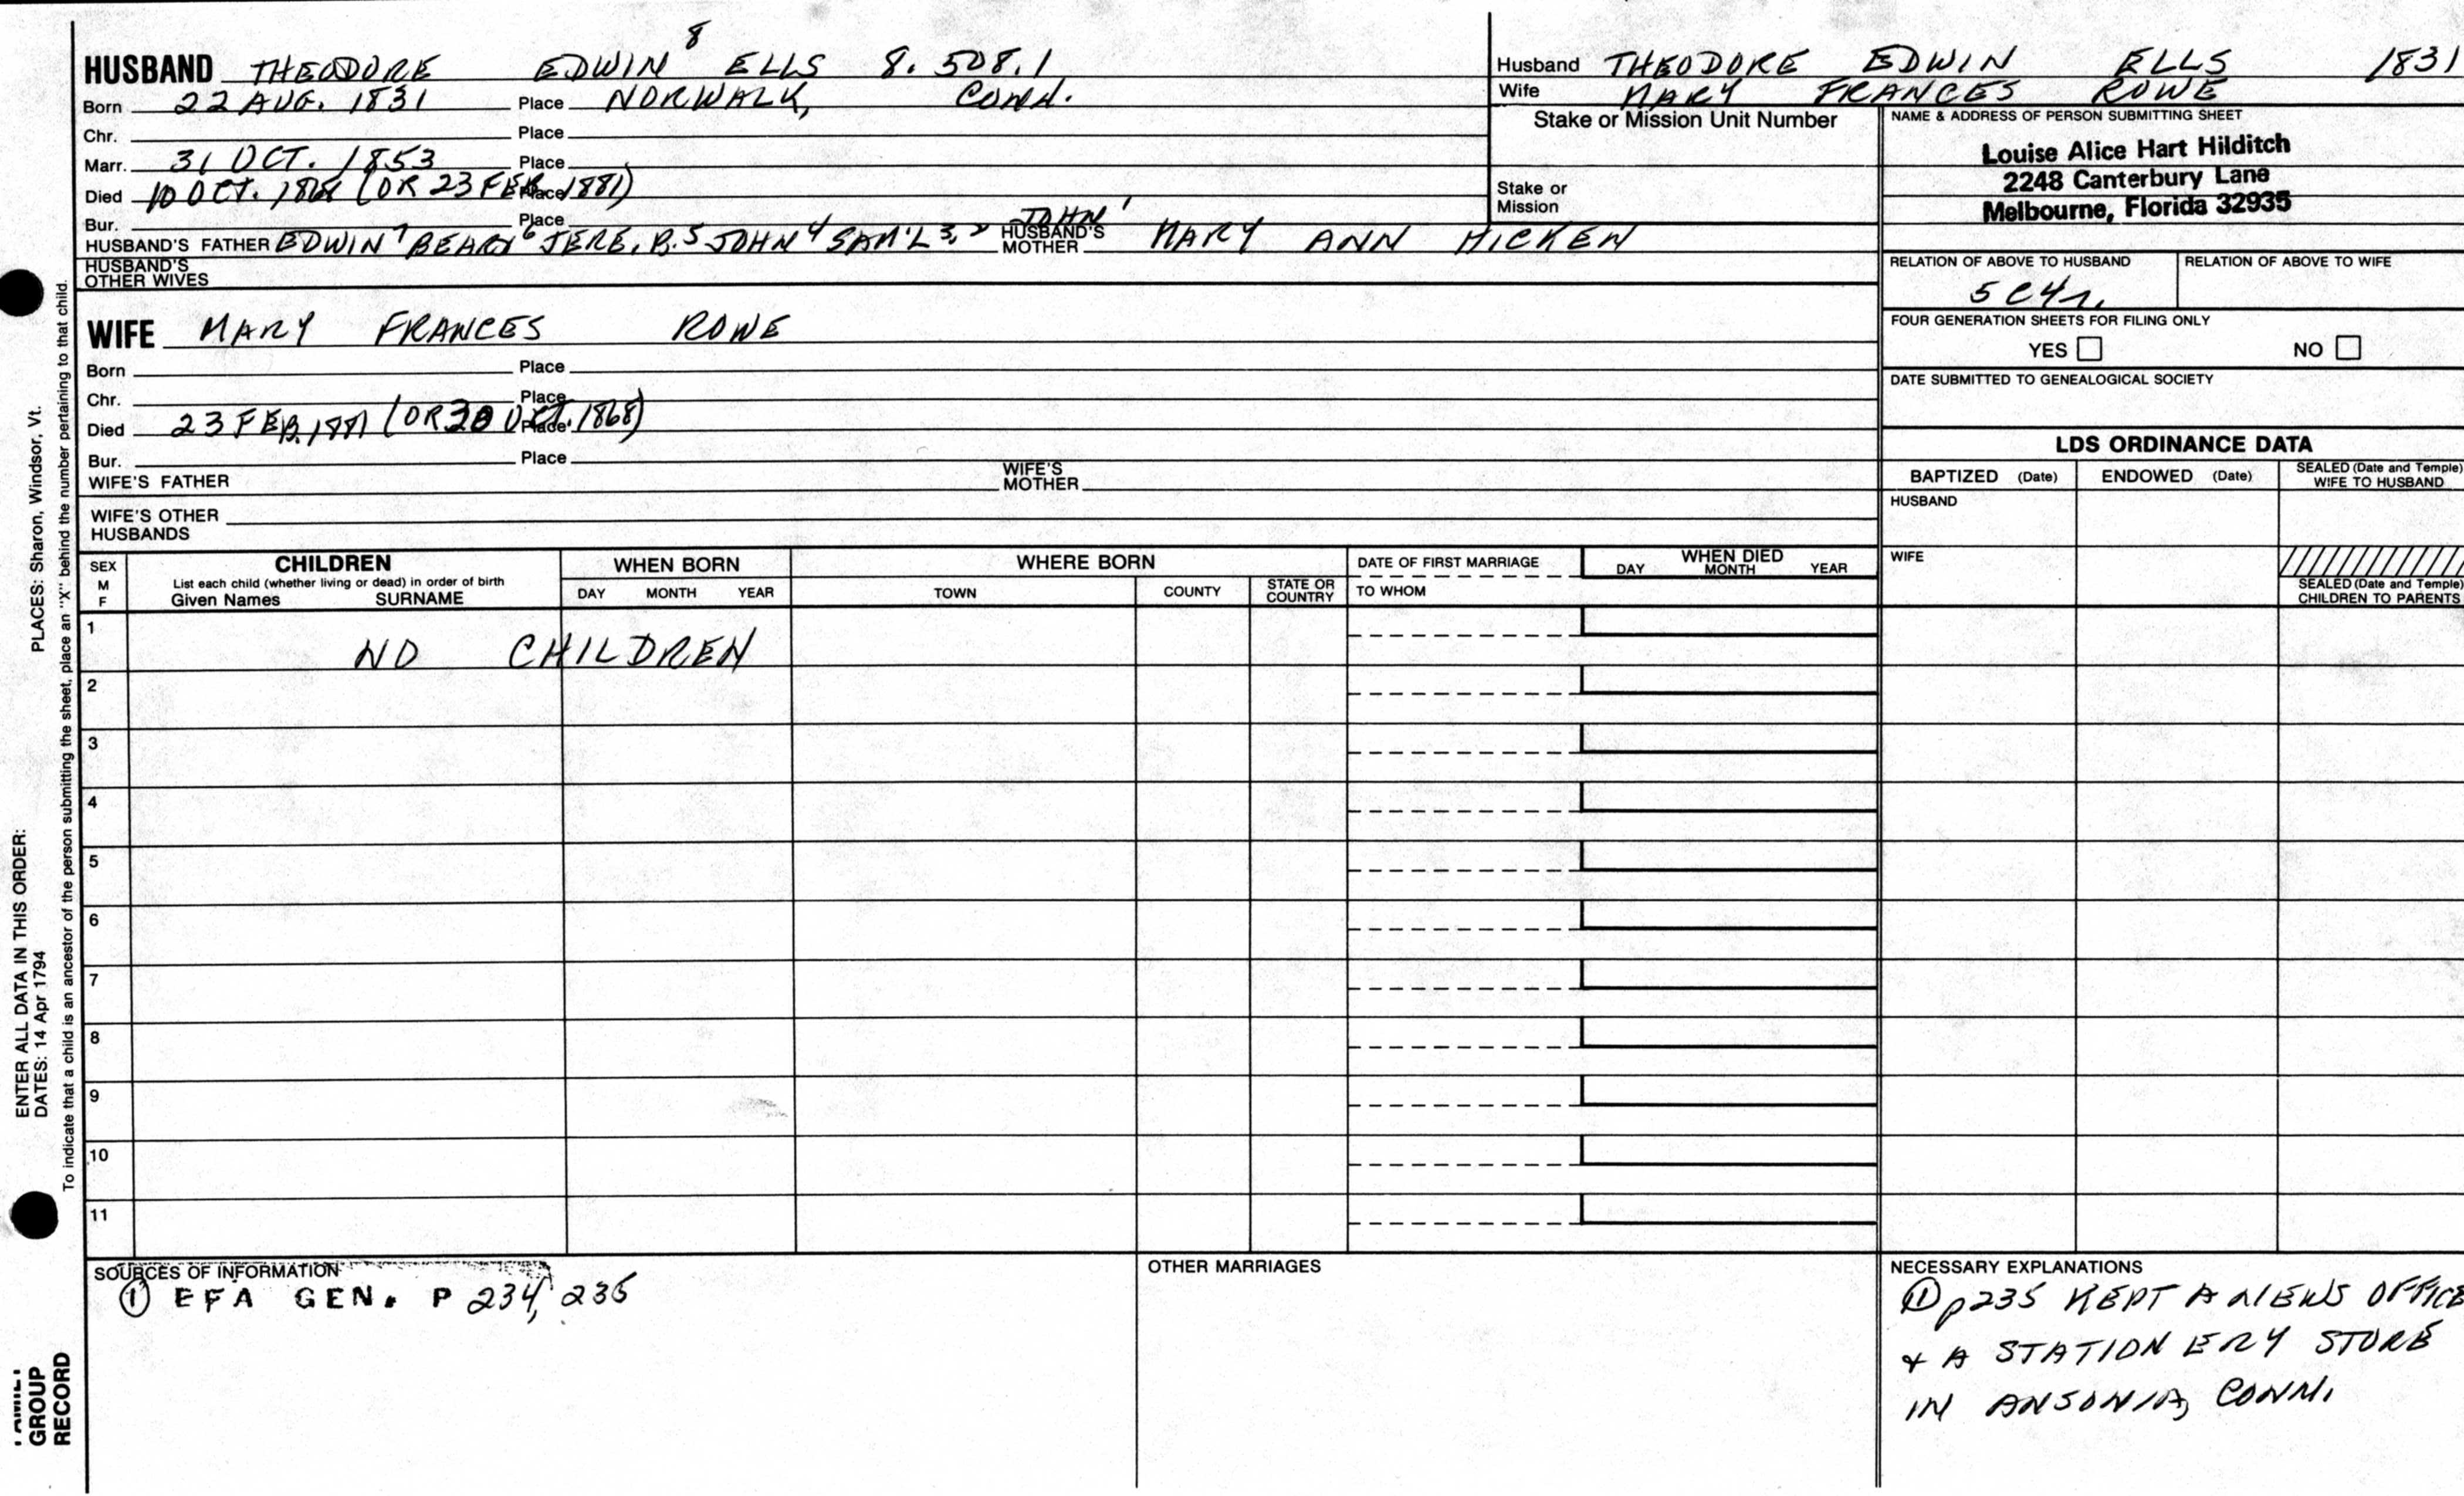 HUSBAND THEODORE EDWIN⁸ ELLS 8.508.1
Born 22 AUG. 1831 Place NORWALK, CONN.
Chr. Place
Marr. 31 OCT. 1853 Place
Died 10 OCT. 1868 (OR 23 FEB. 1881) Place
Bur. Place
HUSBAND'S FATHER EDWIN⁷ BEARD⁶ JERE. B.⁵ JOHN⁴ SAM'L³,² JOHN¹ HUSBAND'S MOTHER MARY ANN HICKEN
HUSBAND'S OTHER WIVES
WIFE MARY FRANCES ROWE
Born Place
Chr. Place
Died 23 FEB. 1881 (OR 30 OCT. 1868) Place
Bur. Place
WIFE'S FATHER WIFE'S MOTHER
WIFE'S OTHER HUSBANDS
Husband THEODORE EDWIN ELLS 1831
Wife MARY FRANCES ROWE
Stake or Mission Unit Number
Stake or Mission
NAME & ADDRESS OF PERSON SUBMITTING SHEET
Louise Alice Hart Hilditch
2248 Canterbury Lane
Melbourne, Florida 32935
RELATION OF ABOVE TO HUSBAND RELATION OF ABOVE TO WIFE
5C4r.
FOUR GENERATION SHEETS FOR FILING ONLY
YES NO
DATE SUBMITTED TO GENEALOGICAL SOCIETY
LDS ORDINANCE DATA
BAPTIZED (Date) ENDOWED (Date) SEALED (Date and Temple) WIFE TO HUSBAND
HUSBAND
WIFE
SEALED (Date and Temple) CHILDREN TO PARENTS
SEX M F
CHILDREN
List each child (whether living or dead) in order of birth
Given Names SURNAME
WHEN BORN
DAY MONTH YEAR
WHERE BORN
TOWN COUNTY STATE OR COUNTRY
DATE OF FIRST MARRIAGE
TO WHOM
WHEN DIED
DAY MONTH YEAR
1 NO CHILDREN
2
3
4
5
6
7
8
9
10
11
SOURCES OF INFORMATION
① EFA GEN. P 234, 235
OTHER MARRIAGES
NECESSARY EXPLANATIONS
① p235 KEPT A NEWS OFFICE
& A STATIONERY STORE
IN ANSONIA, CONN.
PLACES: Sharon, Windsor, Vt.
ENTER ALL DATA IN THIS ORDER:
DATES: 14 Apr 1794
To indicate that a child is an ancestor of the person submitting the sheet, place an "X" behind the number pertaining to that child.
FAMILY GROUP RECORD